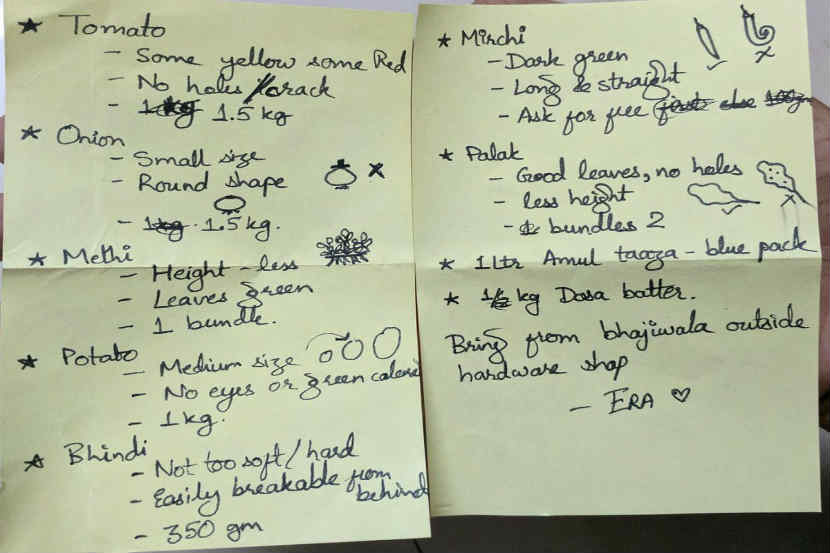 ★ Tomato
- Some yellow some Red
- No holes/crack
- 1.5 kg
★ Onion
- Small size
- Round shape
- 1kg 1.5 kg.
★ Methi
- Height - less
- Leaves green
- 1 bundle.
★ Potato
- Medium size
- No eyes or green colored
- 1 kg.
★ Bhindi
- Not too soft/hard
- Easily breakable from
behind
- 350 gm
★ Mirchi
- Dark green
- Long & straight
- Ask for free (first else 100gm
★ Palak
- Good leaves, no holes
- less height
- bundles 2
★ 1 Ltr Amul taaza - blue pack
★ 1/2 kg Dosa batter.
Bring from bhajiwala outside
hardware shop
- ERA ♡